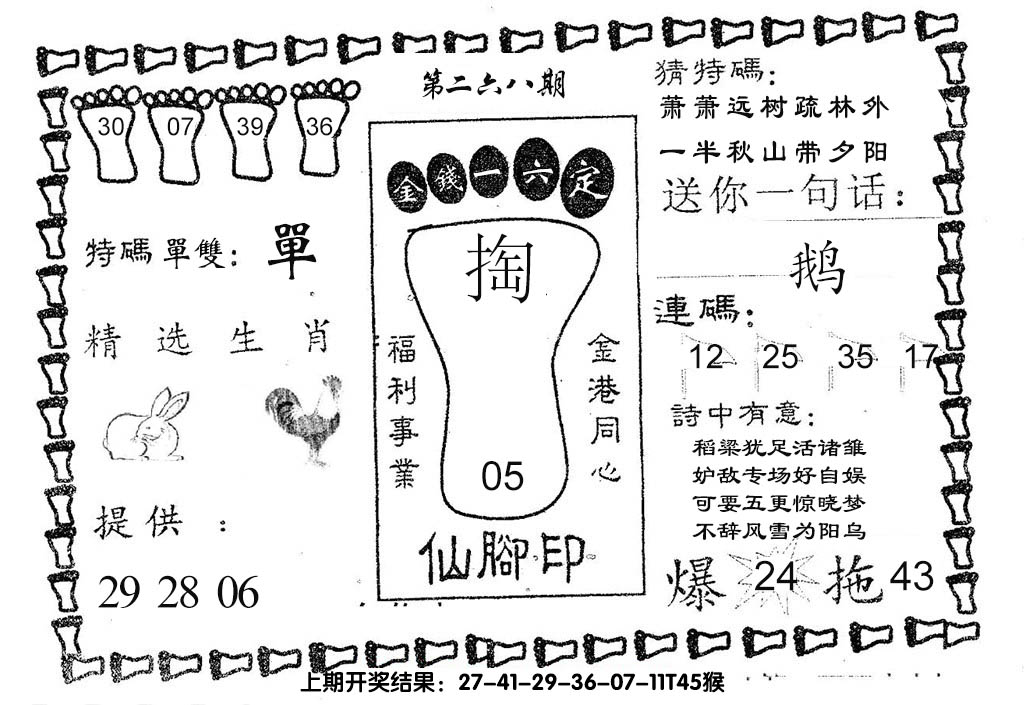 第二六八期
30 07 39 36
特碼單雙：單
精选生肖
提供：
29 28 06
金錢一六定
掏
福利事業
金港同心
05
仙腳印
猜特碼：
萧萧远树疏林外
一半秋山带夕阳
送你一句话：
鹅
連碼：
12 25 35 17
詩中有意：
稻粱犹足活诸雏
妒敌专场好自娱
可要五更惊晓梦
不辞风雪为阳乌
爆 24 拖 43
上期开奖结果：27-41-29-36-07-11T45猴